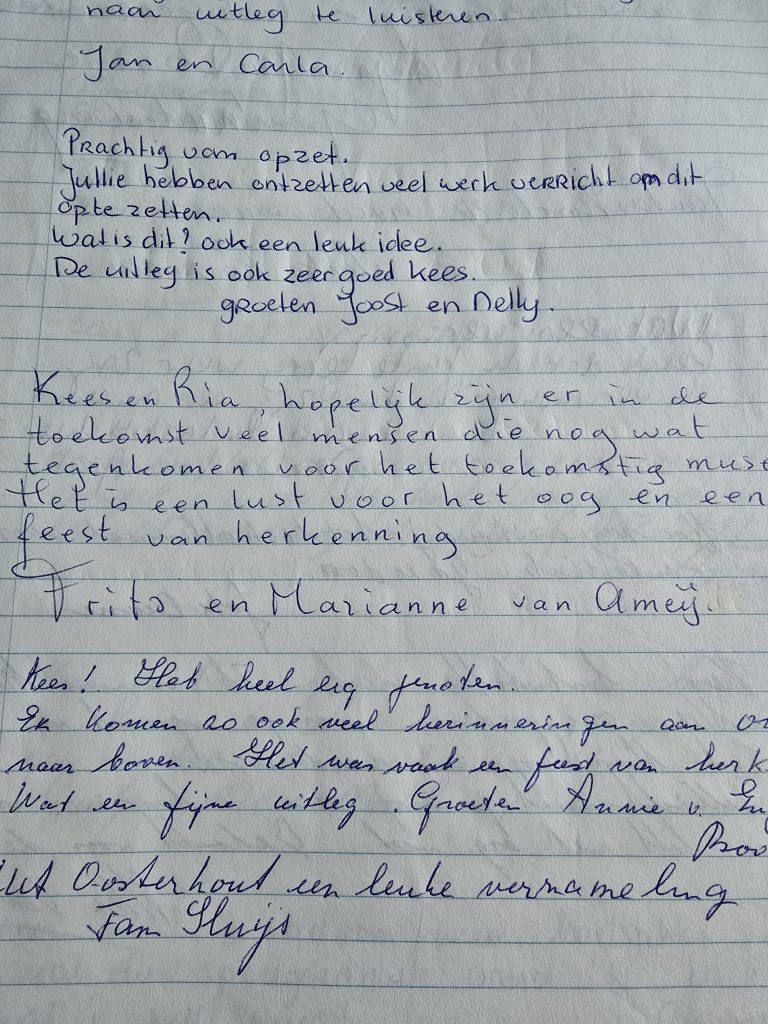 naar uitleg te luisteren.
Jan en Carla.
Prachtig vam opzet.
Jullie hebben ontzetten veel werk verricht om dit
op te zetten.
Wat is dit? ook een leuk idee.
De uitleg is ook zeer goed Kees.
groeten Joost en Nelly.
Kees en Ria, hopelijk zijn er in de
toekomst veel mensen die nog wat
tegenkomen voor het toekomstig muse
Het is een lust voor het oog en een
feest van herkenning
Frits en Marianne van Ameij.
Kees! Heb heel erg genoten.
Er komen zo ook veel herinneringen aan
naar boven. Het was vaak een feest van herk
Wat een fijne uitleg. Groeten Annie v.
Uit Oosterhout een leuke vernameling
Fam Sluijs